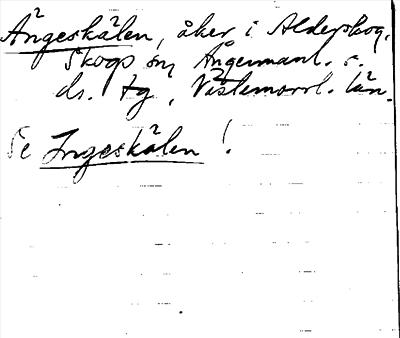 Ängeskälen, åker i Alderskog,
Skogs sn, Ångermanl. s.
ds. tg, Västernorrl. län.
Se Ingeskälen!